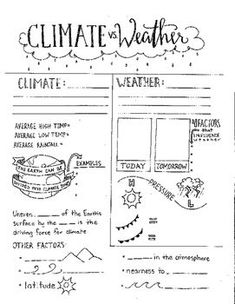 CLIMATE vs. Weather
CLIMATE:
WEATHER:
AVERAGE HIGH TEMP=
AVERAGE LOW TEMP=
AVERAGE RAINFALL=
EXAMPLES
THE EARTH CAN BE
DIVIDED INTO CLIMATE ZONES
Uneven ___ of the Earth's
surface by the ___ is the
driving force for climate
OTHER FACTORS:
• latitude
FACTORS
that
INFLUENCE
weather
TODAY
TOMORROW
H
PRESSURE
L
• ___ in the atmosphere
• nearness to ___